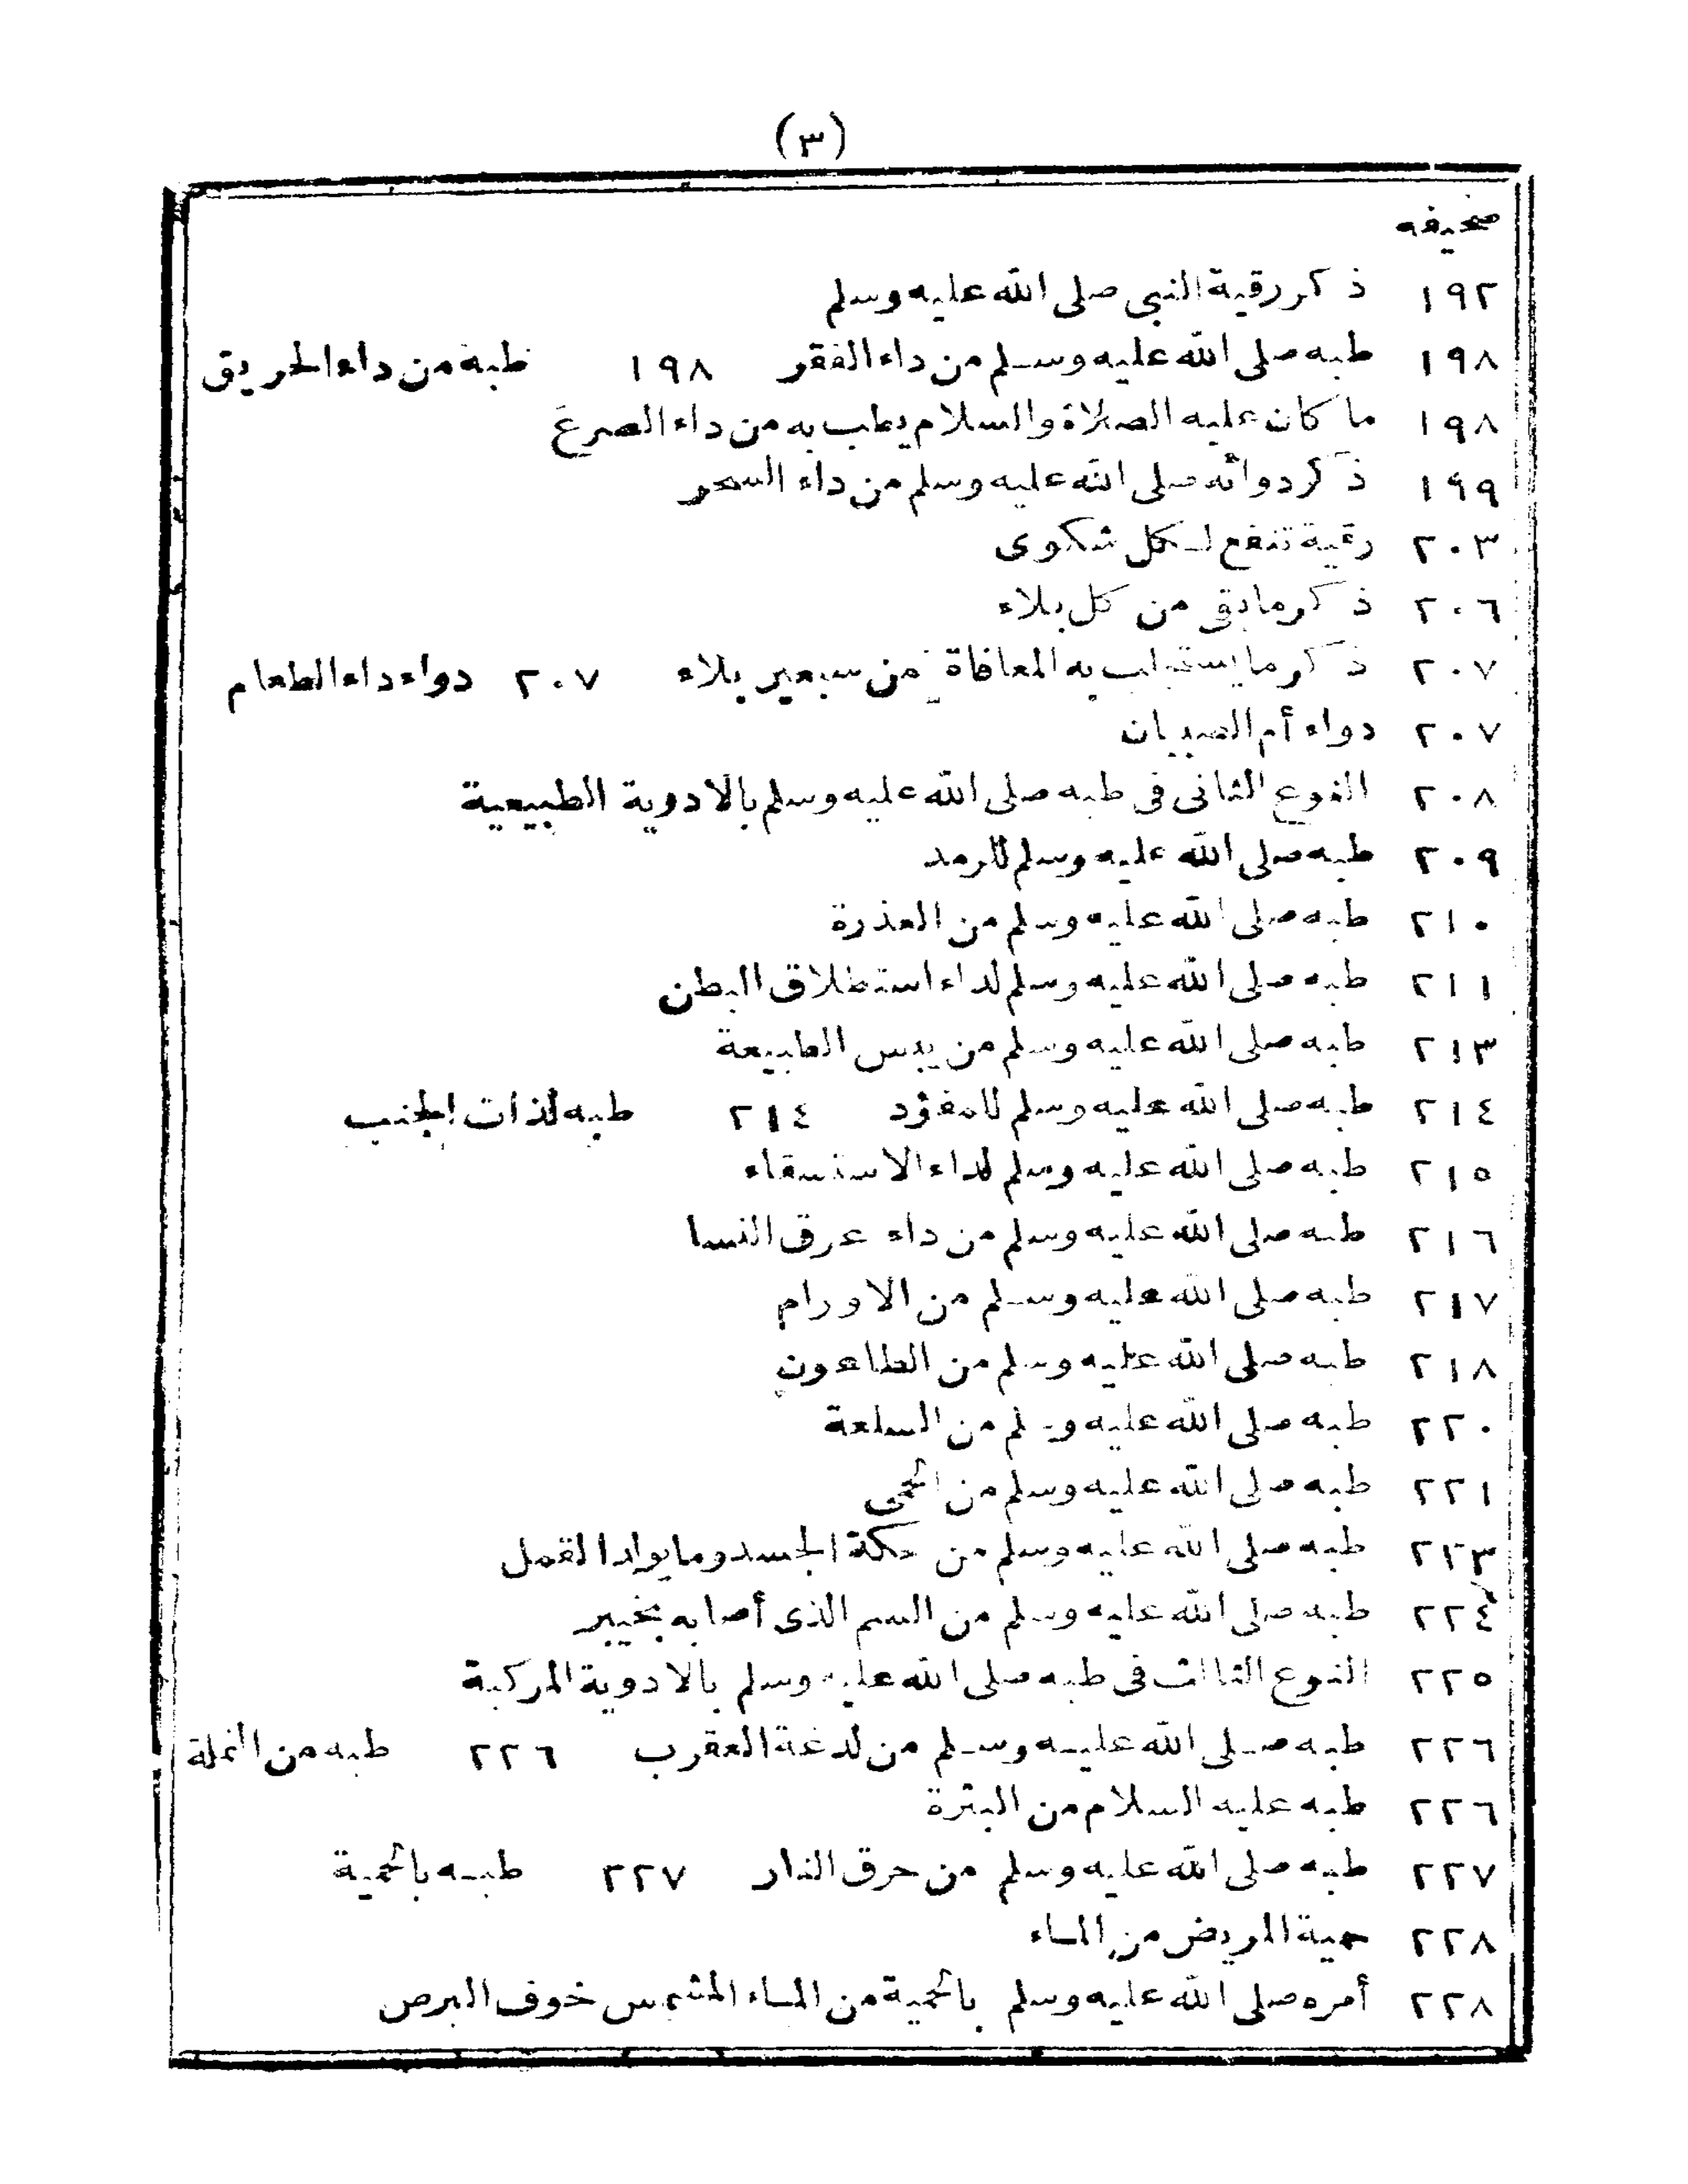 (٣)
صحيفه
١٩٢ ذكر رقية النبي صلى الله عليه وسلم
١٩٨ طبه صلى الله عليه وسلم من داء الفقر ١٩٨ طبه من داء الحريق
١٩٨ ما كان عليه الصلاة والسلام يطب به من داء الصرع
١٩٩ ذكر دوائه صلى الله عليه وسلم من داء السحر
٢٠٣ رقية تنفع لكل شكوى
٢٠٦ ذكر ما يقى من كل بلاء
٢٠٧ ذكر ما يستجلب به المعافاة من سبعين بلاء ٢٠٧ دواء داء الطعام
٢٠٧ دواء أم الصبيان
٢٠٨ النوع الثانى فى طبه صلى الله عليه وسلم بالادوية الطبيعية
٢٠٩ طبه صلى الله عليه وسلم للرمد
٢١٠ طبه صلى الله عليه وسلم من العذرة
٢١١ طبه صلى الله عليه وسلم لداء استطلاق البطن
٢١٣ طبه صلى الله عليه وسلم من يبس الطبيعة
٢١٤ طبه صلى الله عليه وسلم للمفؤد ٢١٤ طبه لذات الجنب
٢١٥ طبه صلى الله عليه وسلم لداء الاستسقاء
٢١٦ طبه صلى الله عليه وسلم من داء عرق النسا
٢١٧ طبه صلى الله عليه وسلم من الاورام
٢١٨ طبه صلى الله عليه وسلم من الطاعون
٢٢٠ طبه صلى الله عليه وسلم من السلعة
٢٢١ طبه صلى الله عليه وسلم من الحمى
٢٢٣ طبه صلى الله عليه وسلم من حكة الجسد وما يولد القمل
٢٢٤ طبه صلى الله عليه وسلم من السم الذى أصابه بخيبر
٢٢٥ النوع الثالث فى طبه صلى الله عليه وسلم بالادوية المركبة
٢٢٦ طبه صلى الله عليه وسلم من لدغة العقرب ٢٢٦ طبه من النملة
٢٢٦ طبه عليه السلام من البثرة
٢٢٧ طبه صلى الله عليه وسلم من حرق النار ٢٢٧ طبه بالحمية
٢٢٨ حمية المريض من الماء
٢٢٨ أمره صلى الله عليه وسلم بالحمية من الماء المشمس خوف البرص